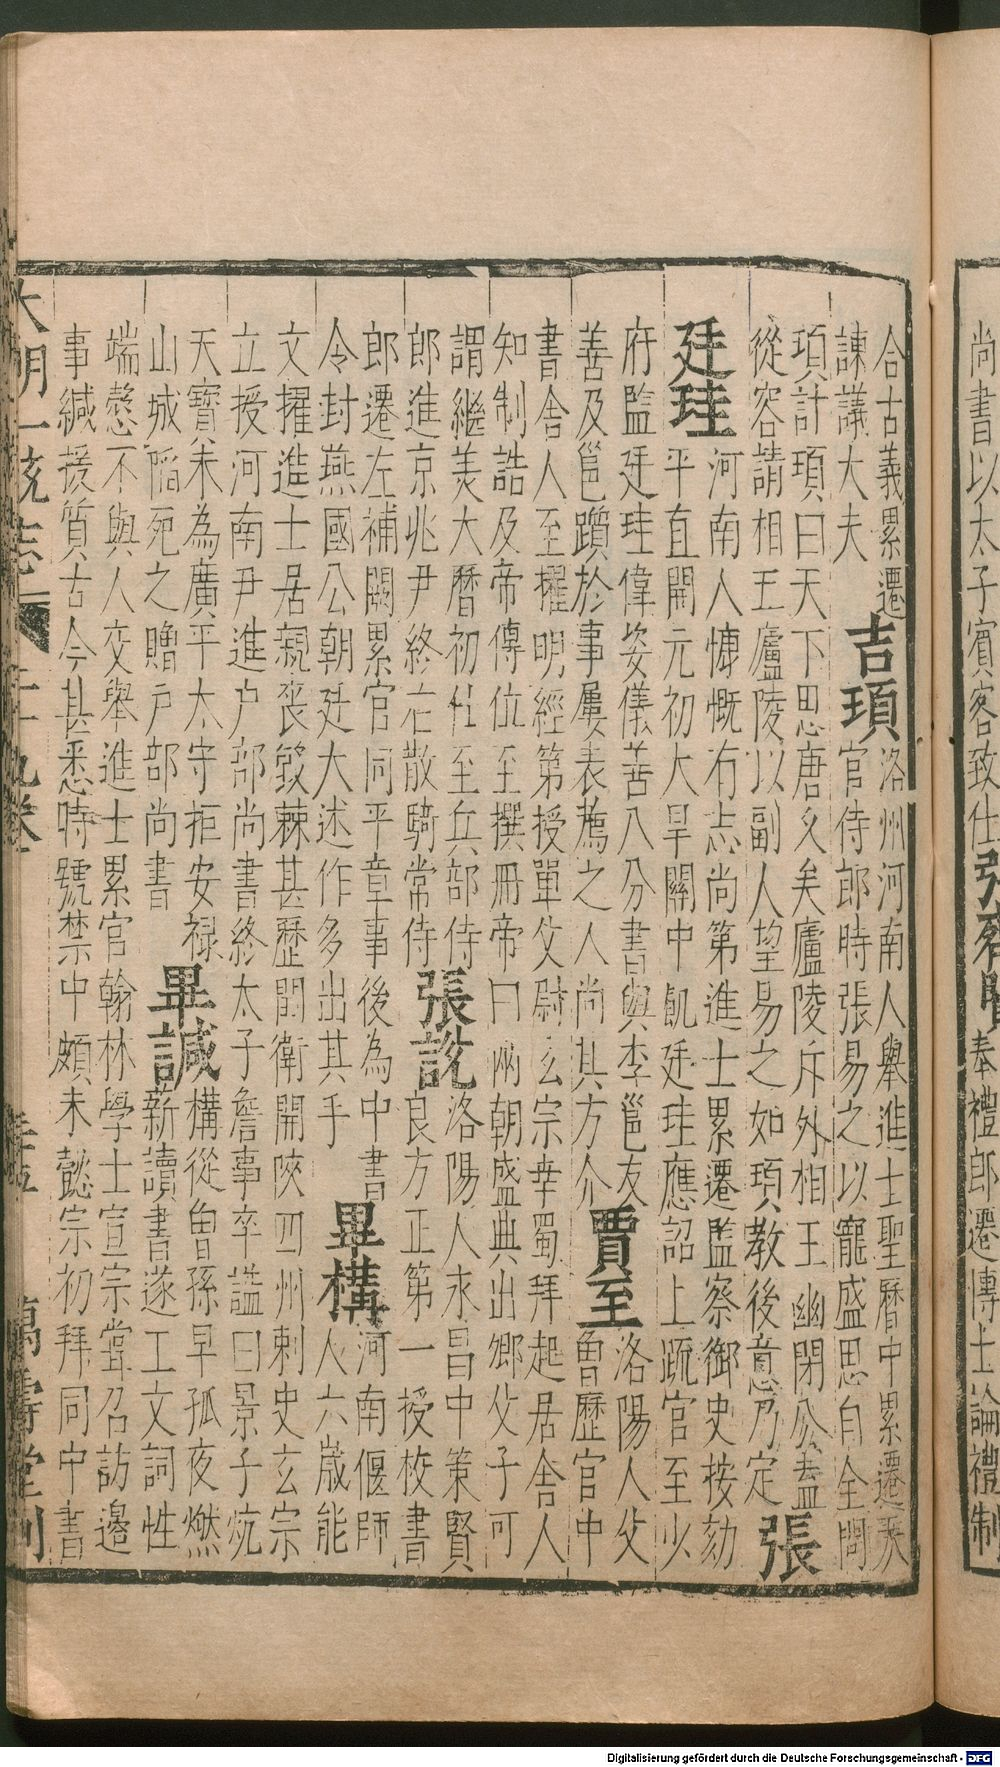 尚書以太子賓客致仕張 奉禮郎遷博士論禮制
合古義累遷
諫議大夫
吉頊
洛州河南人舉進士聖曆中累遷天
官侍郎時張易之以寵盛思自全問
頊計頊曰天下思唐久矣廬陵斥外相王幽閉公盍
從容請相王廬陵以副人望易之如頊教後意乃定
張
廷珪
河南人慷慨有志尚第進士累遷監察御史按劾
平直開元初大旱關中飢廷珪應詔上疏官至少
府監廷珪偉姿儀善八分書與李邕友
善及邕躓於事屢表薦之人尚其方介
賈至
洛陽人父
曾歷官中
書舍人至擢明經第授單父尉玄宗幸蜀拜起居舍人
知制誥及帝傳位至撰冊帝曰兩朝盛典出卿父子可
謂繼美大曆初仕至兵部侍
郎進京兆尹終右散騎常侍
張說
洛陽人永昌中策賢
良方正第一授校書
郎遷左補闕累官同平章事後為中書
令封燕國公朝廷大述作多出其手
畢構
河南偃師
人六歲能
文擢進士居親喪毀棘甚歷閬衛開陝四州刺史玄宗
立授河南尹進户部尚書終太子詹事卒謚曰景子炕
天寶末為廣平太守拒安祿
山城陷死之贈戶部尚書
畢諴
構從曾孫早孤夜燃
薪讀書遂工文詞性
端愨不與人交舉進士累官翰林學士宣宗嘗召訪邊
事緘援質古今甚悉時號禁中頗未懿宗初拜同中書
大明一統志 二十九卷 萬壽堂刊
Digitalisierung gefördert durch die Deutsche Forschungsgemeinschaft - DFG